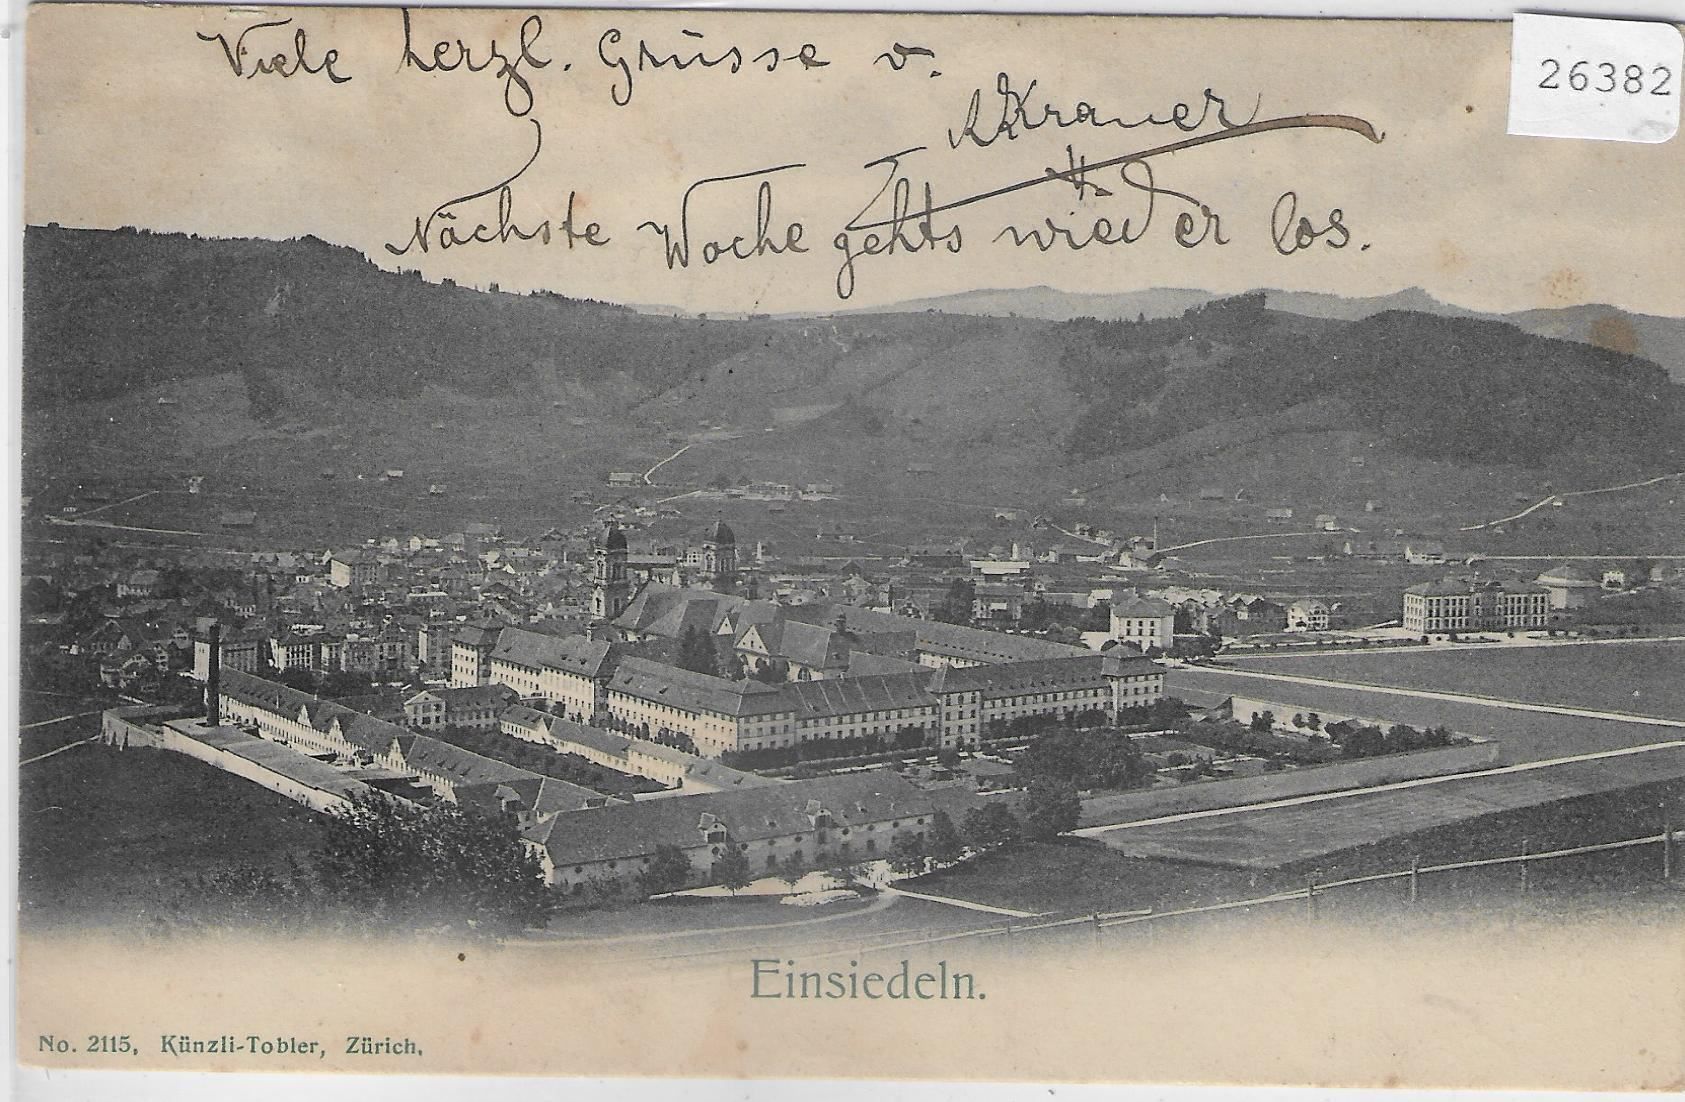 Viele herzl. Grüsse v.
26382
Krauer
Nächste Woche gehts wieder los.
Einsiedeln.
No. 2115, Künzli-Tobler, Zürich.